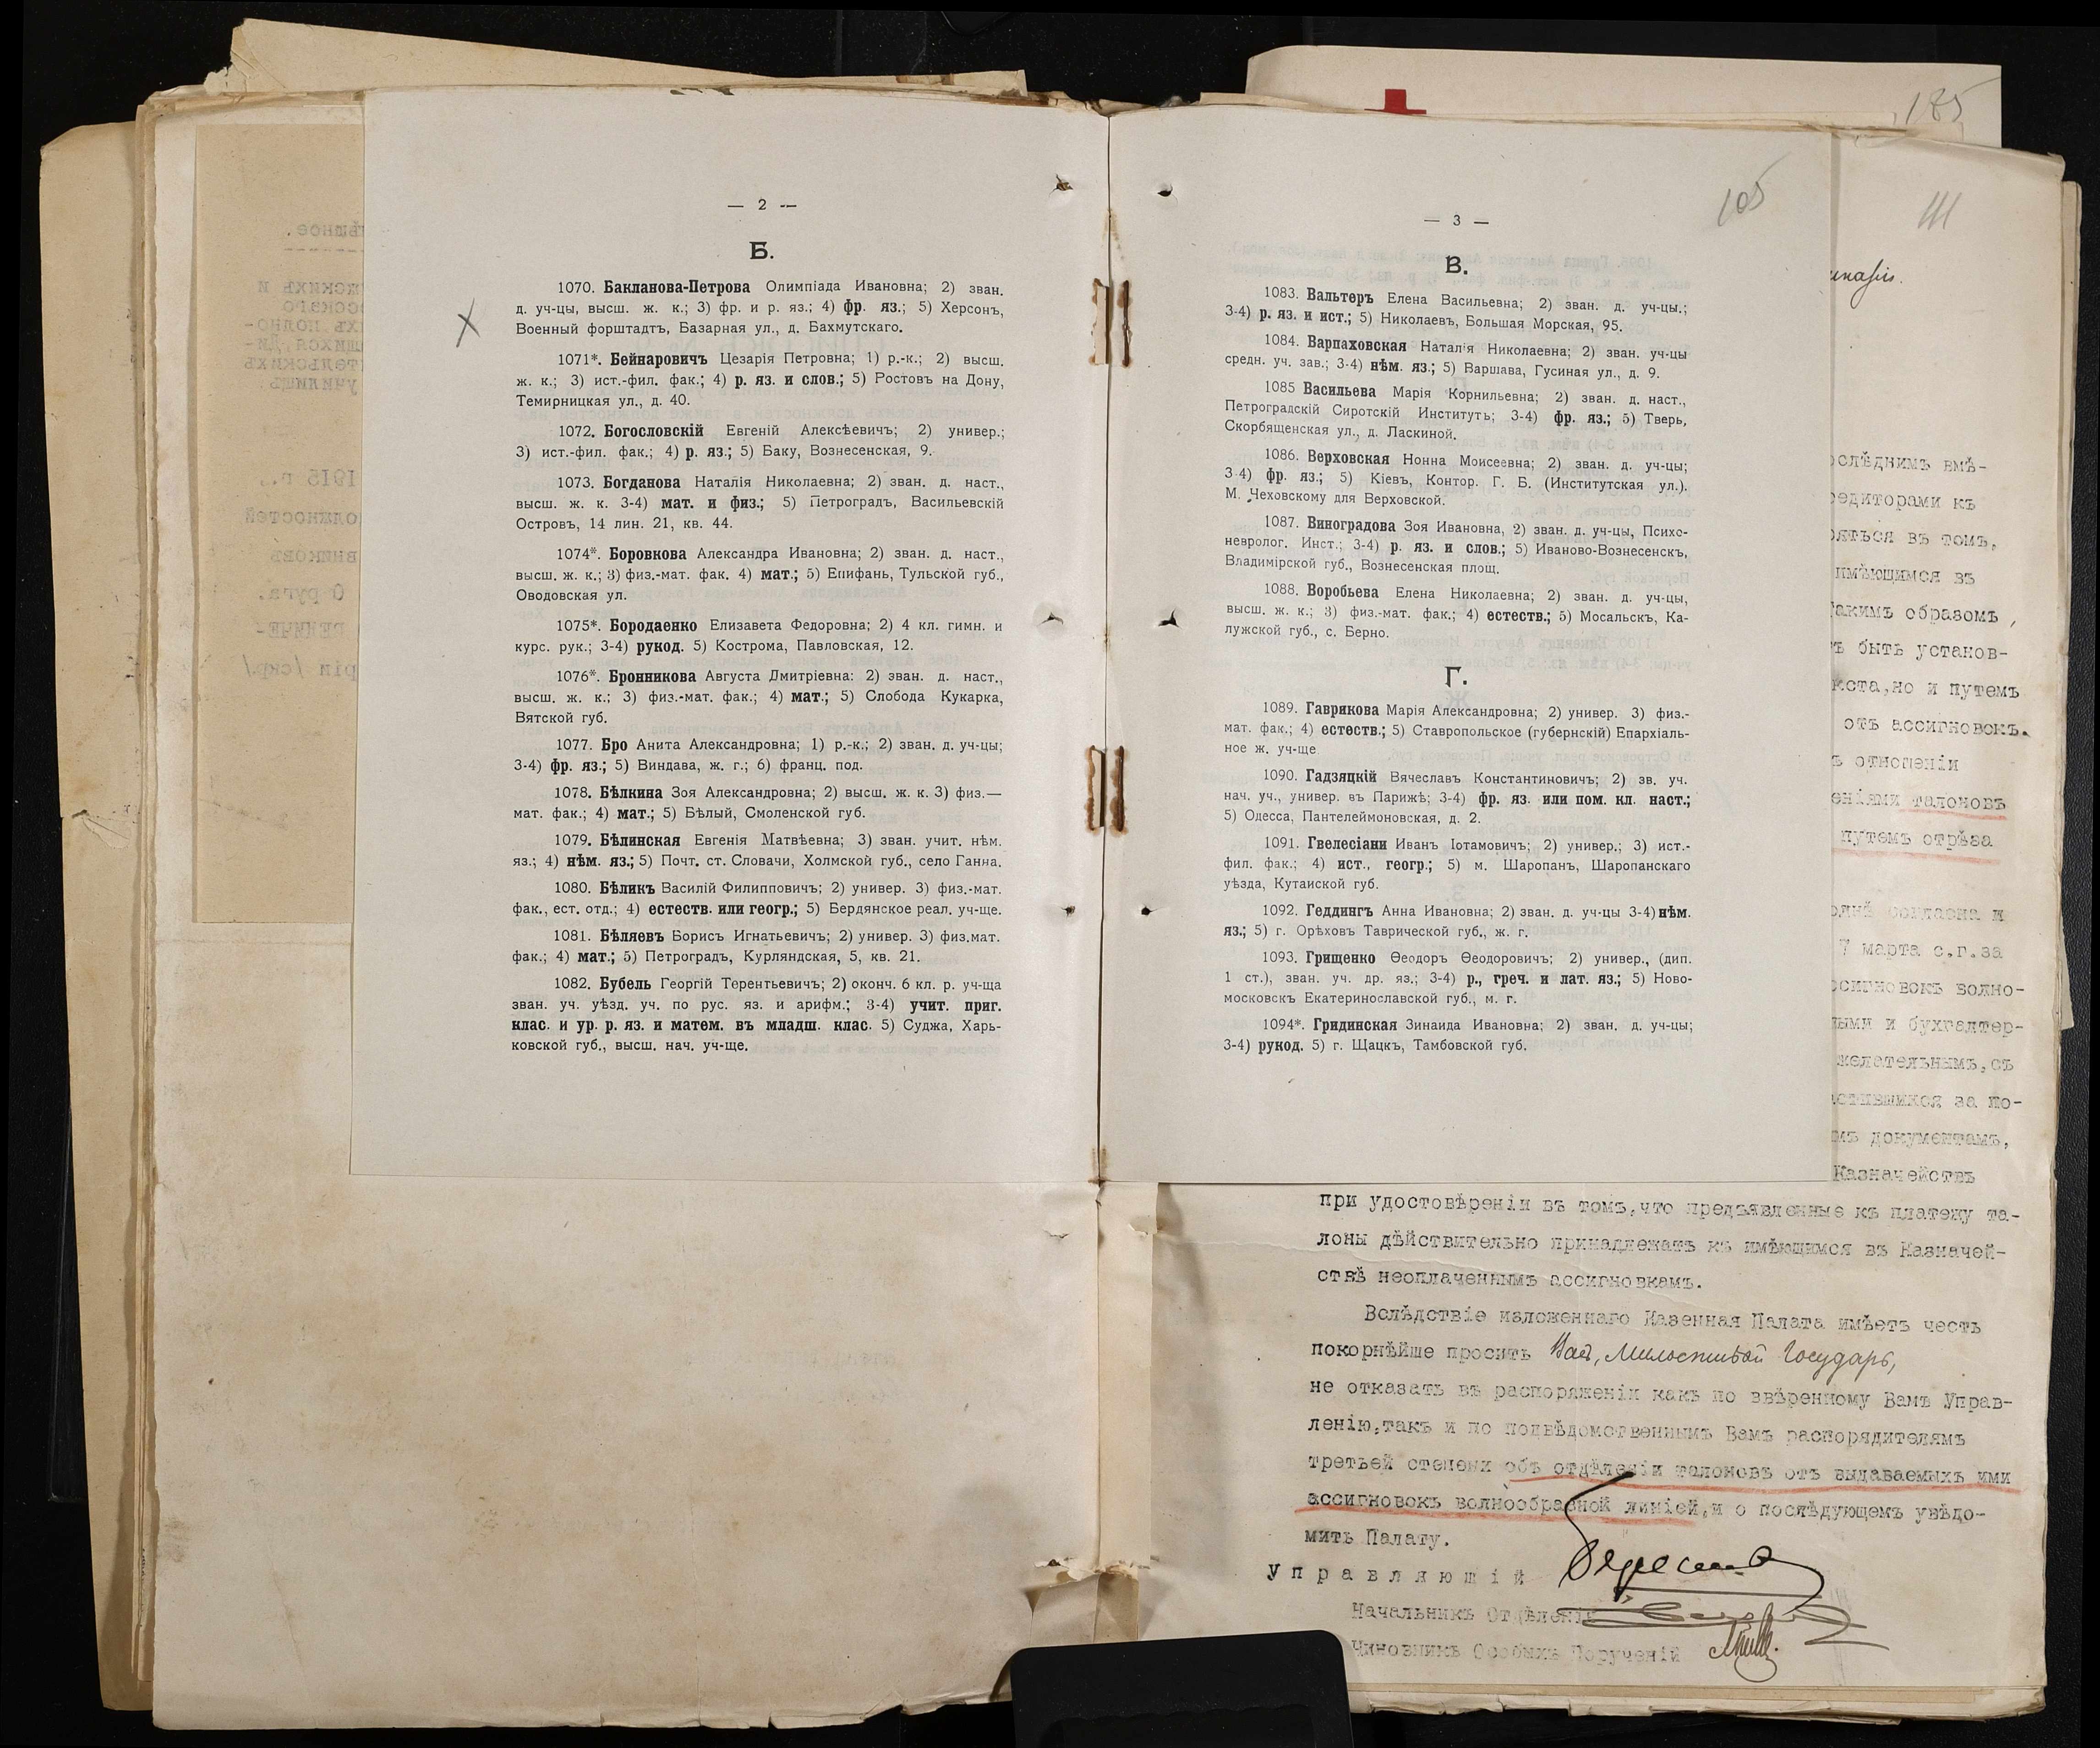 — 2 —
Б.
1070. Бакланова-Петрова Олимпіада Ивановна; 2) зван.
д. уч-цы, высш. ж. к.; 3) фр. и р. яз.; 4) фр. яз.; 5) Херсонъ,
Военный форштадтъ, Базарная ул., д. Бахмутскаго.
1071*. Бейнаровичъ Цезарія Петровна; 1) р.-к.; 2) высш.
ж. к.; 3) ист.-фил. фак.; 4) р. яз. и слов.; 5) Ростовъ на Дону,
Темирницкая ул., д. 40.
1072. Богословскій Евгеній Алексѣевичъ; 2) универ.;
3) ист.-фил. фак.; 4) р. яз.; 5) Баку, Вознесенская, 9.
1073. Богданова Наталія Николаевна; 2) зван. д. наст.,
высш. ж. к. 3-4) мат. и физ.; 5) Петроградъ, Васильевскій
Островъ, 14 лин. 21, кв. 44.
1074*. Боровкова Александра Ивановна; 2) зван. д. наст.,
высш. ж. к.; 3) физ.-мат. фак. 4) мат.; 5) Епифань, Тульской губ.,
Оводовская ул.
1075*. Бородаенко Елизавета Федоровна; 2) 4 кл. гимн. и
курс. рук.; 3-4) рукод. 5) Кострома, Павловская, 12.
1076*. Бронникова Августа Дмитріевна: 2) зван. д. наст.,
высш. ж. к.; 3) физ.-мат. фак.; 4) мат.; 5) Слобода Кукарка,
Вятской губ.
1077. Бро Анита Александровна; 1) р.-к.; 2) зван. д. уч-цы;
3-4) фр. яз.; 5) Виндава, ж. г.; 6) франц. под.
1078. Бѣлкина Зоя Александровна; 2) высш. ж. к. 3) физ.—
мат. фак.; 4) мат.; 5) Бѣлый, Смоленской губ.
1079. Бѣлинская Евгенія Матвѣевна; 3) зван. учит. нѣм.
яз.; 4) нѣм. яз.; 5) Почт. ст. Словачи, Холмской губ., село Ганна.
1080. Бѣликъ Василій Филипповичъ; 2) универ. 3) физ.-мат.
фак., ест. отд.; 4) естеств. или геогр.; 5) Бердянское реал. уч-ще.
1081. Бѣляевъ Борисъ Игнатьевичъ; 2) универ. 3) физ.мат.
фак.; 4) мат.; 5) Петроградъ, Курляндская, 5, кв. 21.
1082. Бубель Георгій Терентьевичъ; 2) оконч. 6 кл. р. уч-ща
зван. уч. уѣзд. уч. по рус. яз. и арифм.; 3-4) учит. приг.
клас. и ур. р. яз. и матем. въ младш. клас. 5) Суджа, Харь-
ковской губ., высш. нач. уч-ще.
185
105
111
— 3 —
В.
1083. Вальтеръ Елена Васильевна; 2) зван. д. уч-цы.;
3-4) р. яз. и ист.; 5) Николаевъ, Большая Морская, 95.
1084. Варпаховская Наталія Николаевна; 2) зван. уч-цы
средн. уч. зав.; 3-4) нѣм. яз.; 5) Варшава, Гусиная ул., д. 9.
1085 Васильева Марія Корнильевна; 2) зван. д. наст.,
Петроградскій Сиротскій Институтъ; 3-4) фр. яз.; 5) Тверь,
Скорбященская ул., д. Ласкиной.
1086. Верховская Нонна Моисеевна; 2) зван. д. уч-цы;
3 4) фр. яз.; 5) Кіевъ, Контор. Г. Б. (Институтская ул.).
М. Чеховскому для Верховской.
1087. Виноградова Зоя Ивановна, 2) зван. д. уч-цы, Психо-
неврολог. Инст.; 3-4) р. яз. и слов.; 5) Иваново-Вознесенскъ,
Владимірской губ., Вознесенская площ.
1088. Воробьева Елена Николаевна; 2) зван. д. уч-цы,
высш. ж. к.; 3) физ.-мат. фак.; 4) естеств.; 5) Мосальскъ, Ка-
лужской губ., с. Берно.
Г.
1089. Гаврикова Марія Александровна; 2) универ. 3) физ.-
мат. фак.; 4) естеств.; 5) Ставропольское (губернскій) Епархіаль-
ное ж. уч-ще
1090. Гадзяцкій Вячеславъ Константиновичъ; 2) зв. уч.
нач. уч., универ. въ Парижѣ; 3-4) фр. яз. или пом. кл. наст.;
5) Одесса, Пантелеймоновская, д. 2.
1091. Гвелесіани Иванъ Іотамовичъ; 2) универ.; 3) ист.-
фил. фак.; 4) ист., геогр.; 5) м. Шаропанъ, Шаропанскаго
уѣзда, Кутаиской губ.
1092. Геддингъ Анна Ивановна; 2) зван. д. уч-цы 3-4) нѣм.
яз.; 5) г. Орѣховъ Таврической губ., ж. г.
1093. Грищенко Ѳеодоръ Ѳеодоровичъ; 2) универ., (дип.
1 ст.), зван. уч. др. яз.; 3-4) р., греч. и лат. яз.; 5) Ново-
московскъ Екатеринославской губ., м. г.
1094*. Гридинская Зинаида Ивановна; 2) зван. д. уч-цы;
3-4) рукод. 5) г. Щацкъ, Тамбовской губ.
ослѣднимъ вмѣ-
редиторами къ
яться въ томъ,
имѣющимся въ
Такимъ образомъ,
ъ быть установ-
кста,но и путемъ
отъ ассигновокъ.
ъ отношеніи
еніями талоновъ
путемъ отрѣза
согласна и
7 марта с.г.за
ссигновокъ волно-
ными и бухгалтер-
желательнымъ,съ
за по-
мъ документамъ,
Казначействъ
при удостовѣреніи въ томъ,что предъявленные къ платежу та-
лоны дѣйствительно принадлежатъ къ имѣющимся въ Казначей-
ствѣ неоплаченнымъ ассигновкамъ.
Вслѣдствіе изложеннаго Казенная Палата имѣетъ честь
покорнѣйше просить Васъ, Милостивый Государь,
не отказать въ распоряженіи какъ по ввѣренному Вамъ Управ-
ленію,такъ и по подвѣдомственнымъ Вамъ распорядителямъ
третьей степени объ отдѣленіи талоновъ отъ выдаваемыхъ ими
ассигновокъ волнообразной линіей,и о послѣдующемъ увѣдо-
мить Палату.
Управляющій
Начальникъ Отдѣленія
Чиновникъ Особыхъ Порученій